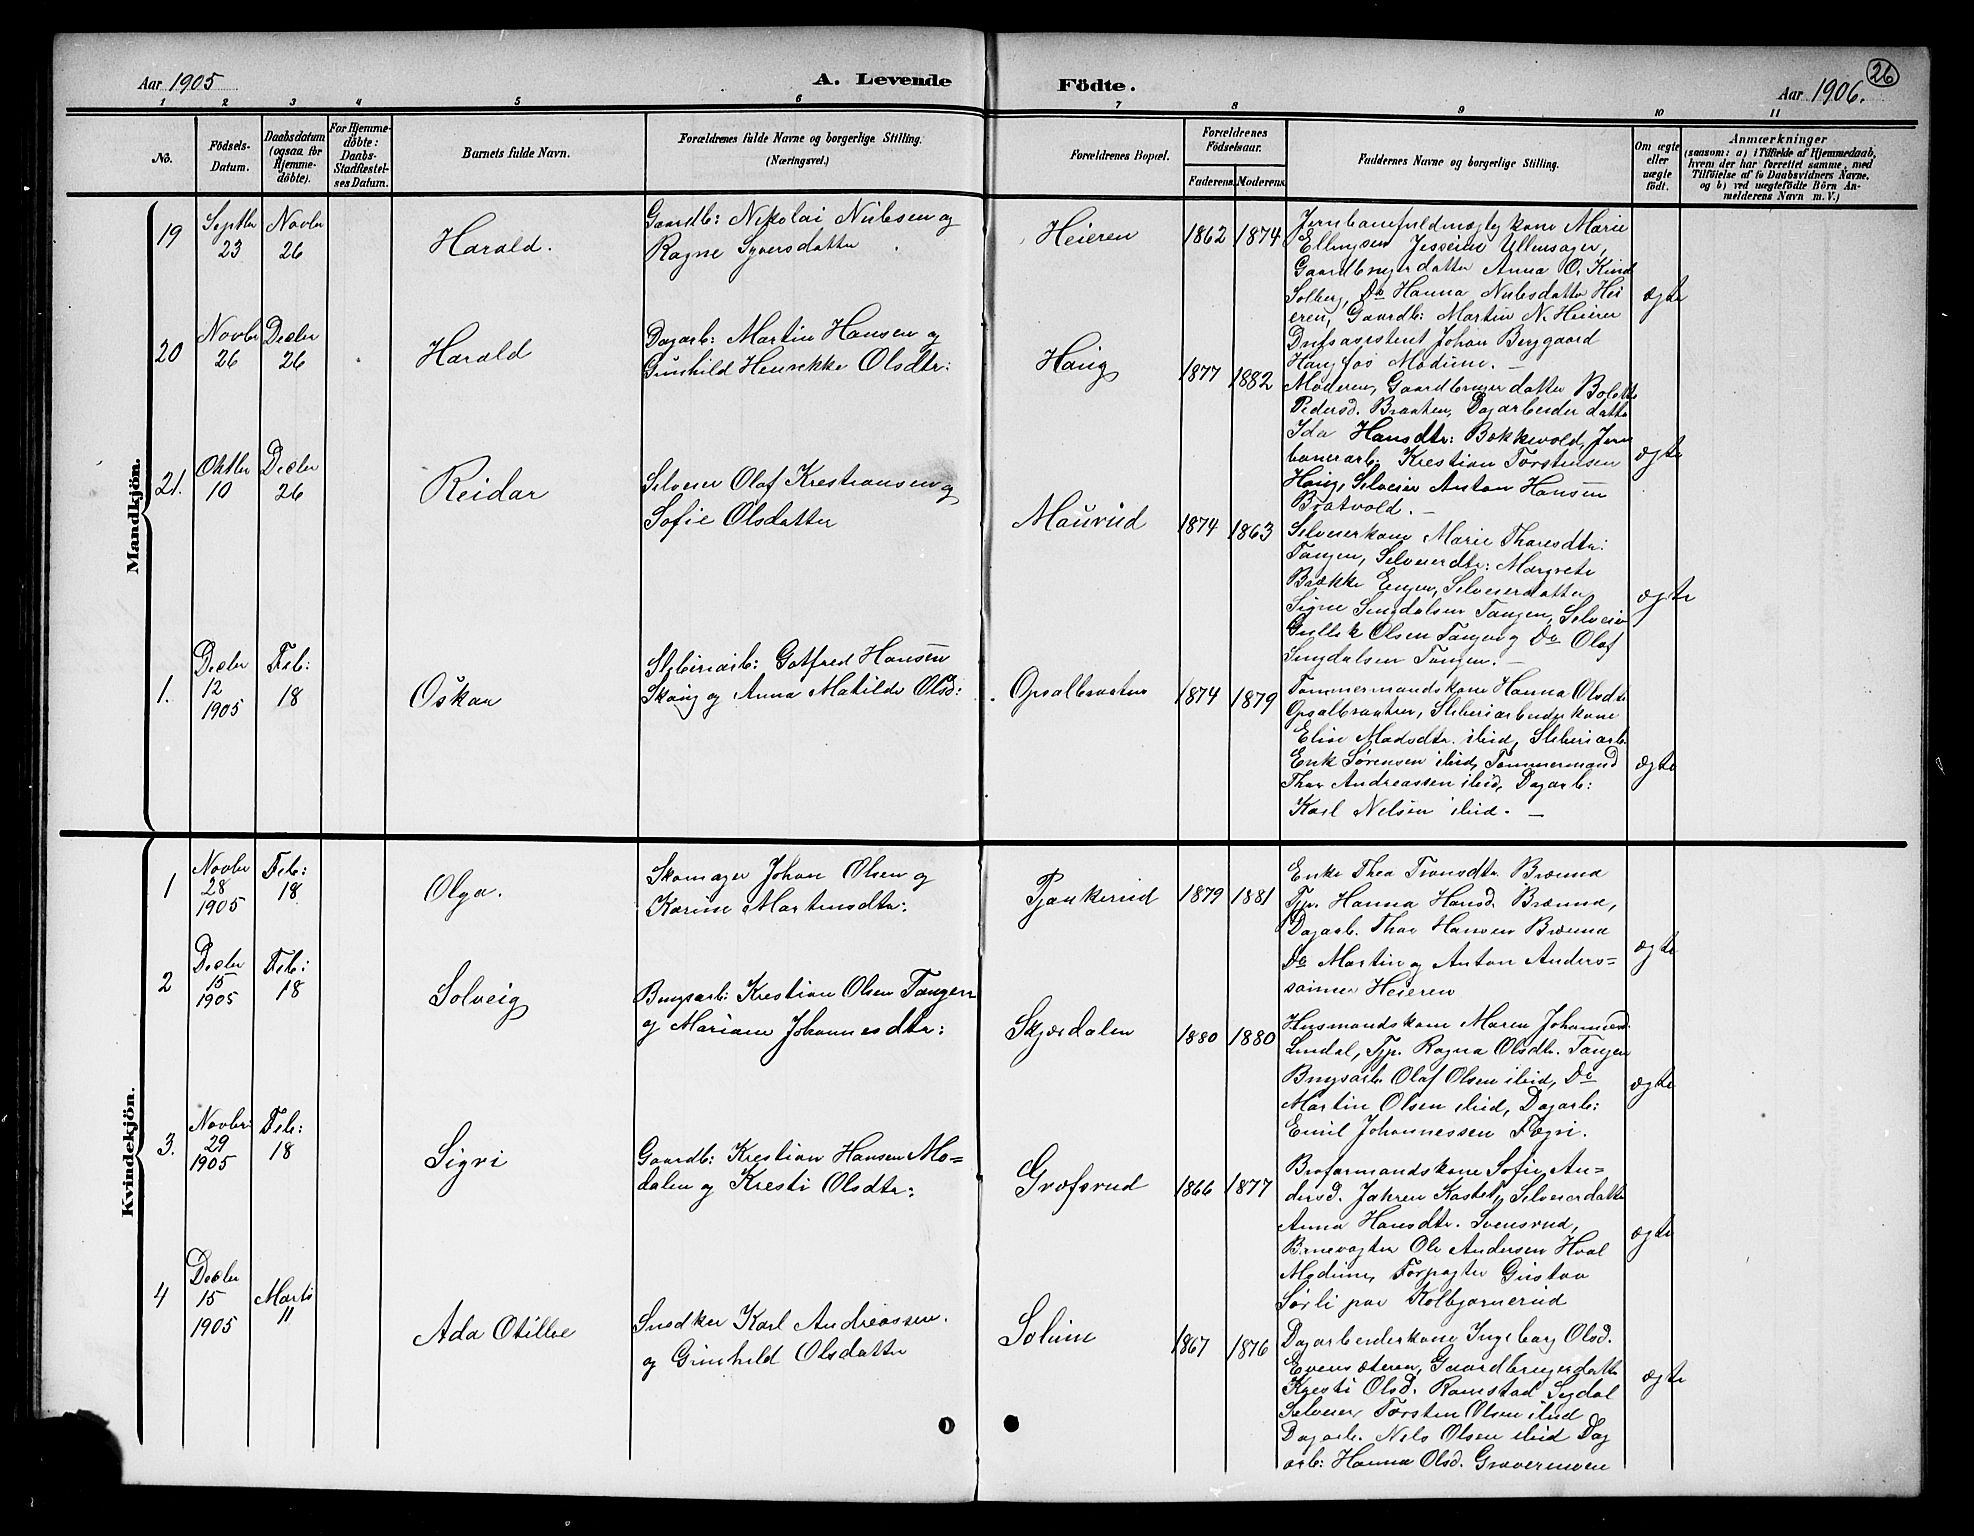 Aar 1905
A. Levende
Födte.
Aar 1906.
26
1 2 3 4 5 6 7 8 9 10 11
No.
Födsels-
Datum.
Daabsdatum
(ogsaa for
Hjemme-
döbte).
For Hjemme-
döbte:
Daabs-
Stadfæstel-
ses Datum.
Barnets fulde Navn.
Forældrenes fulde Navne og borgerlige Stilling.
(Næringsvei.)
Forældrenes Bopæl.
Forældrenes
Födselsaar.
Faderens.
Moderens.
Faddernes Navne og borgerlige Stilling.
Om ægte
eller
uægte
födt.
Anmærkninger
(saasom: a) i Tilfælde af Hjemmedaab,
hvem der har forrettet samme, med
Tilföielse af to Daabsvidners Navne.
og b) ved uægtefödte Börn An-
melderens Navn m. V.)
Mandkjön.
19
Septbr
23
Novbr
26
Harald.
Gaardb: Nikolai Nilsen og
Ragne Syversdatter
Heieren
1862
1874
Jernbanefuldmægtig kone Marie
Ellingsen Jesseim Ullensager,
Gaardbrugerdatter Anna O. Kind
Solberg, Do Hanna Nilsdatter Hei
eren, Gaardb: Martin N. Heieren
Driftsasistent Johan Berggaard
Haugfos Modum. –
ægte
20
Novbr
26
Decbr
26
Harald
Dagarb: Martin Hansen og
Gunhild Henrikke Olsdtr:
Haug
1877
1882
Moderen, Gaardbruger datter Bolette
Pedersd. Braaten, Dagarbeider datter
Ida Hansdtr: Bækkevold, Jern
banearb: Kristian Torstensen
Haug, Selveier Anton Hansen
Bratvold. –
ægte
21.
Oktbr
10
Decbr
26
Reidar
Selveier Olaf Kristiansen og
Sofie Olsdatter
Maurud
1874
1863
Selveierkone Marie Tharesdtr:
Tangen, Selveierdtr: Margrete
Bække Engen, Selveierdatter
Signe Singdalsen Tangen, Selveier
Gullik Olsen Tangen og Do Olaf
Singdalsen Tangen. –
ægte
1.
Decbr
12
1905
Feb:
18
Oskar
Sliberiarb: Gotfred Hansen
Skaug og Anna Matilde Olsd:
Opsalbraaten
1874
1879
Tømmermandskone Hanna Olsdtr
Opsalbraaten, Sliberiarbeiderkone
Elise Madsdtr. ibid, Sliberiarb.
Erik Sørensen ibid, Tømmermand
Thor Andreassen ibid, Dagarb:
Karl Nilsen ibid. –
ægte
Kvindekjön.
1
Novbr
28
1905
Feb:
18
Olga.
Skomager Johan Olsen og
Karine Martinsdtr:
Tjankerud
1879
1881
Enke Thea Tronsdtr. Brænna
Tjp. Hanna Hansd. Brænna,
Dagarb. Thor Hansen Brænna
Do Martin og Anton Anders=
sønner Heieren
ægte
2
Decbr
15
1905
Feb:
18
Solveig
Brugsarb: Kristian Olsen Tangen
og Mariane Johannesdtr:
Skjærdalen
1880
1880
Husmandskone Maren Johannesd.
Lindal, Tjp. Ragna Olsdtr. Tangen
Brugsarb. Olaf Olsen ibid, Do
Martin Olsen ibid, Dagarb:
Emil Johannessen Fegri.
ægte
3.
Novbr:
29
1905
Feb:
18
Sigri
Gaardb: Kristian Hansen Mo=
dalen og Kristi Olsdtr:
Græfsrud
1866
1877
Broformandskone Sofie An=
dersd. Jahren Kastet, Selveierdatter
Anna Hansdtr. Svensrud,
Banevogter Ole Andersen Hval
Modum, Forpagter Gustav
Sørli paa Kolbjørnerud
ægte
4
Decbr
15
1905
Marts
11
Ada Otilie
Snedker Karl Andreassen.
og Gunhild Olsdatter
Solum
1867
1876
Dagarbeiderkone Ingeborg Olsd.
Evensæteren, Gaardbrugerdatter
Kristi Olsd. Ramstad Sigdal
Selveier Torsten Olsen ibid
Dagarb. Nils Olsen ibid Dag
arb: Hanna Olsd. Gravermoen
ægte